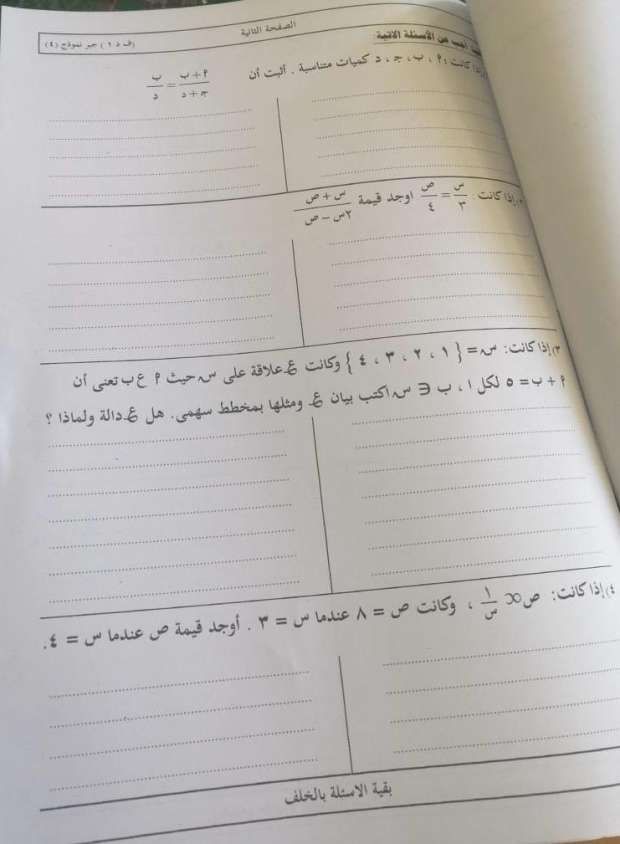 الصفحة الثانية
(ف د ١) جبر نموذج (٤)
أجب عن الأسئلة الآتية:
إذا كانت: أ ، ب ، جـ ، د كميات متناسبة . أثبت أن (أ + ب)/(جـ + د) = ب/د
إذا كانت س/٣ = ص/٤ اوجد قيمة (س + ص)/(٢س − ص)
٣) إذا كانت: سـ = {١ ، ٢ ، ٣ ، ٤} وكانت ع علاقة على سـ حيث أ ع ب تعنى أن
أ + ب = ٥ لكل ا ، ب ∈ سـ اكتب بيان ع ومثلها بمخطط سهمى. هل ع دالة ولماذا ؟
٤) إذا كانت: ص ∝ ١/س ، وكانت ص = ٨ عندما س = ٣ . أوجد قيمة ص عندما س = ٤.
بقية الاسئلة بالخلف